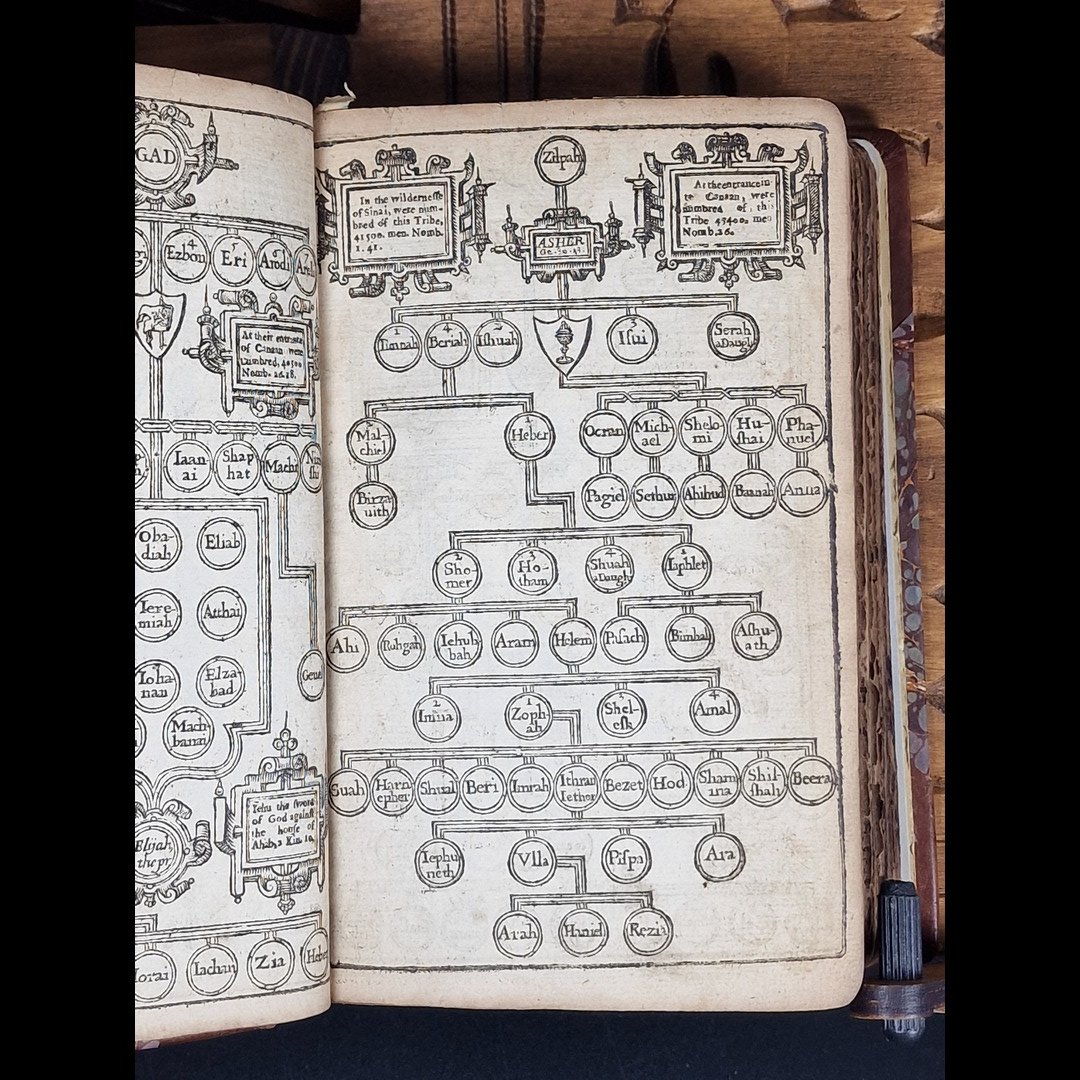 GAD
Ezbon
Eri
Arodi
At their entrance
of Canaan were
numbred, 40500
Nomb. 26.18.
Iaan-
ai
Shap
hat
Machr
Oba-
diah
Eliab
Iere-
miah
Atthai
Ioha-
nan
Elza-
bad
Mach-
banai
Iehu the sword
of God against
the house of
Ahab, 2 Kin. 10.
Elijah
the pr.
Iorai
Iachan
Zia
Heber
Zilpah
In the wildernesse
of Sinai, were num-
bred of this Tribe,
41500. men. Nomb.
1. 41.
ASHER
Ge. 30. 13.
At the entrance in
to Canaan, were
numbred of this
Tribe 45400. men
Nomb. 26.
1
Iimnah
4
Beriah
2
Ishuah
3
Isui
Serah
a Daugh
Mal-
chiel
Heber
Ocran
Mich-
ael
Shelo-
mi
Hu-
shai
Pha-
nuel
Birza
uith
Pagiel
Sethur
Ahihud
Baanah
Anna
2
Sho-
mer
3
Ho-
tham
4
Shuah
a Daugh
1
Iaphlet
Ahi
Rohgah
Iehub
bah
Aram
Helem
Pasach
Bimhal
Ashu-
ath
2
Imna
1
Zoph-
ah
3
Shel-
esh
4
Amal
Suah
Harn
epher
Shual
Beri
Imrah
Ithran
Iether
Bezet
Hod
Sham
ma
Shil-
shah
Beera
Iephu
neth
Vlla
Pispa
Ara
Arah
Haniel
Rezia